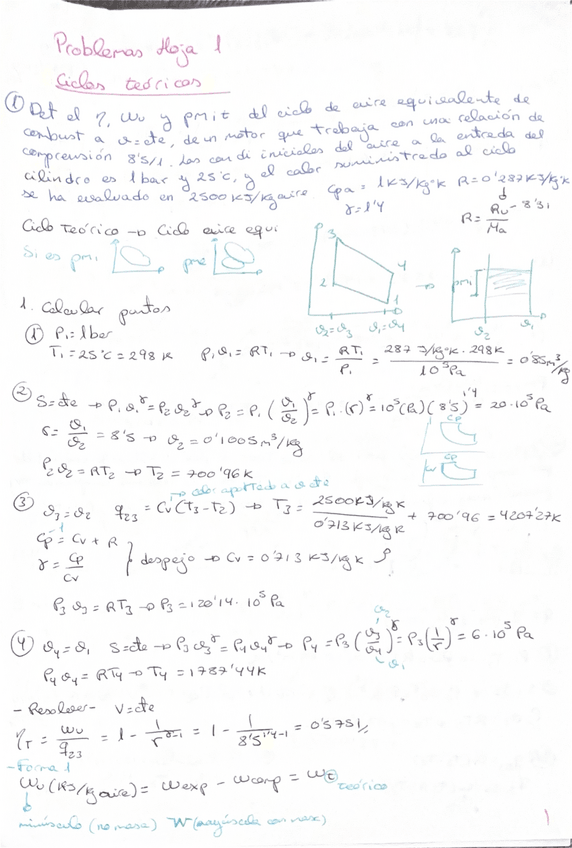 Problemas Hoja 1
Ciclos teóricos
① Det el η, Wu y pmit del ciclo de aire equivalente de
combust a v=cte, de un motor que trabaja con una relación de
comprensión 8'5/1. Las condi iniciales del aire a la entrada del
cilindro es 1 bar y 25°C, y el calor suministrado al ciclo
se ha evaluado en 2500 KJ/Kg aire
Cpa = 1KJ/Kg·K R=0'287KJ/Kg·K
γ=1'4
R = Ru / Ma - 8'31
Ciclo Teórico → Ciclo aire equi
Si es pmi
pme
3
2
4
1
v2=v3 v1=v4
P
pmi
v2 v1
1. Calcular puntos
① P1=1bar
T1=25°C=298 K P1v1=RT1 → v1 = RT1/P1 = 287 J/Kg·K · 298K / 10^5 Pa = 0'85 m³/Kg
② S=cte → P1v1^γ=P2v2^γ → P2=P1 (v1/v2)^γ = P1·(r)^γ = 10^5 (Pa) (8'5)^1'4 = 20·10^5 Pa
r = v1/v2 = 8'5 → v2=0'1005 m³/Kg
P2v2=RT2 → T2 = 700'96K
Cp
→ calor aportado a v cte
③ v3=v2 q23 = Cv(T3-T2) → T3 = 2500KJ/Kg K / 0'713 KJ/Kg K + 700'96 = 4207'27K
Cp = Cv + R
γ = Cp/Cv } despejo → Cv = 0'713 KJ/Kg K
P3 v3 = RT3 → P3 = 120'14·10^5 Pa
④ v4=v1 S=cte → P3v3^γ=P4v4^γ → P4 = P3 (v3/v4)^γ = P3 (1/r)^γ = 6·10^5 Pa
v2
v1
P4v4 = RT4 → T4 = 1787'44K
- Resolver- V=cte
ηT = Wu/q23 = 1 - 1/r^γ-1 = 1 - 1/8'5^1'4-1 = 0'5751
- Forma 1
Wu (KJ/Kg aire) = Wexp - Wcomp = Wt teórico
minúscula (no masa) W (mayúscula con masa)
1